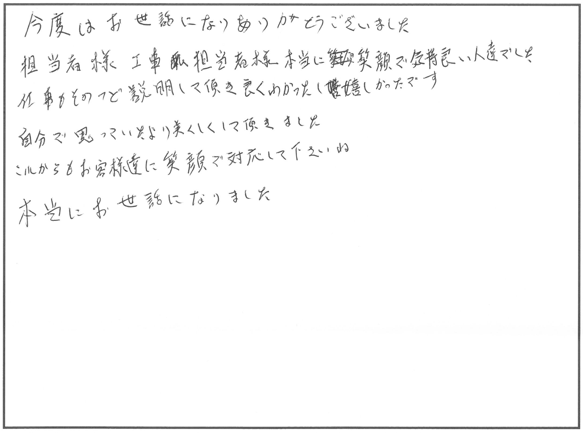 今度はお世話になりありがとうございました
担当者様 工事担当者様 本当に笑顔で気持良い人達でした
仕事もそのつど説明して頂き良くわかったし嬉しかったです
自分で思っていたより美くしくして頂きました
これからもお客様達に笑顔で対応して下さいね
本当にお世話になりました